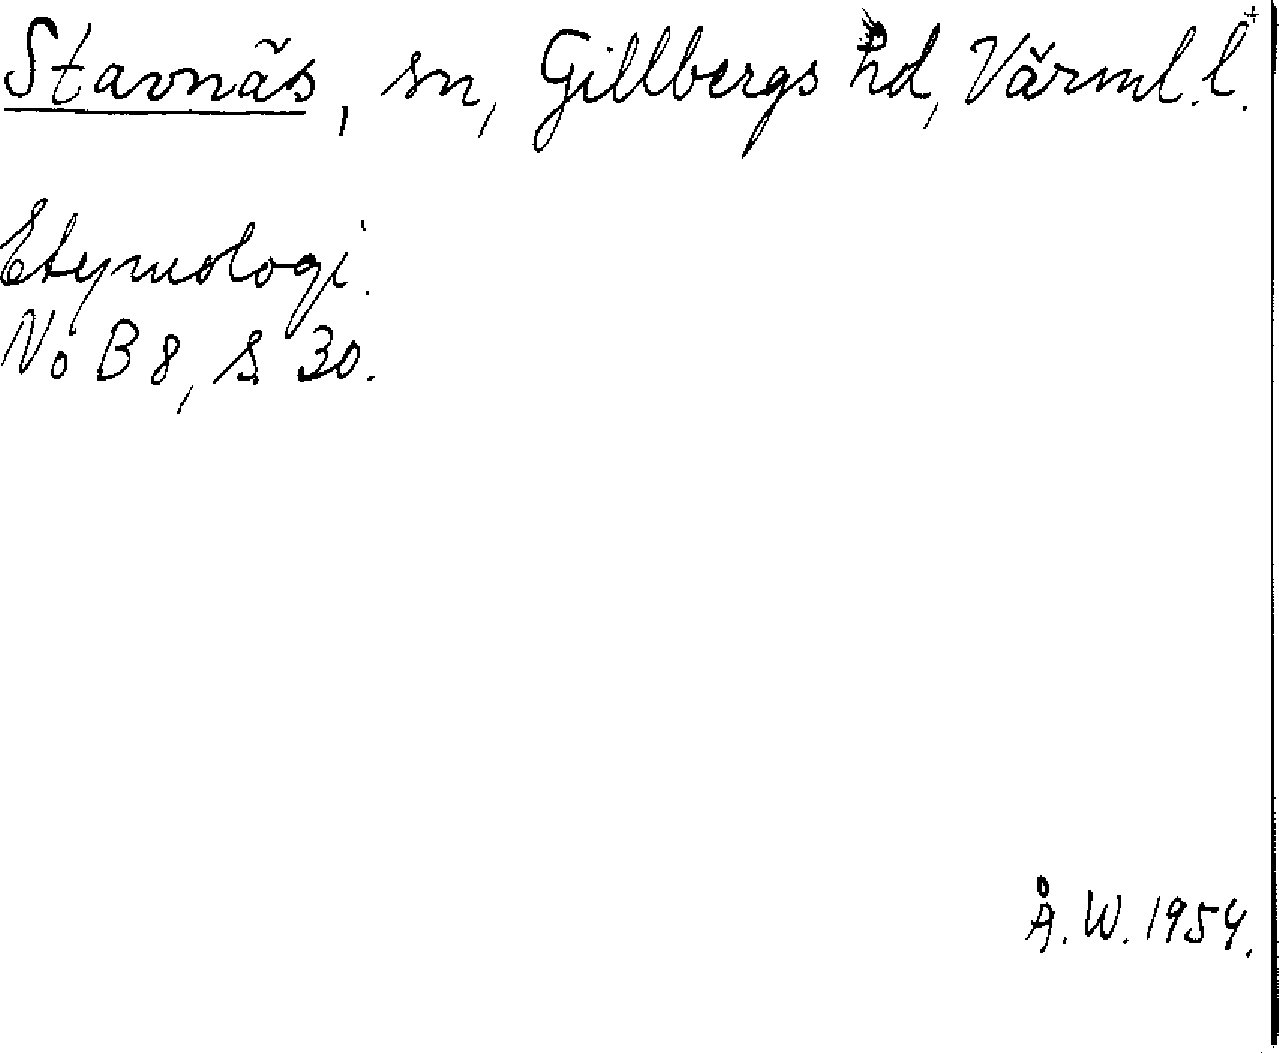 Stavnäs, sn, Gillbergs hd, Värml. l.
Etymologi.
No B 8, s 30.
Å. W. 1954.